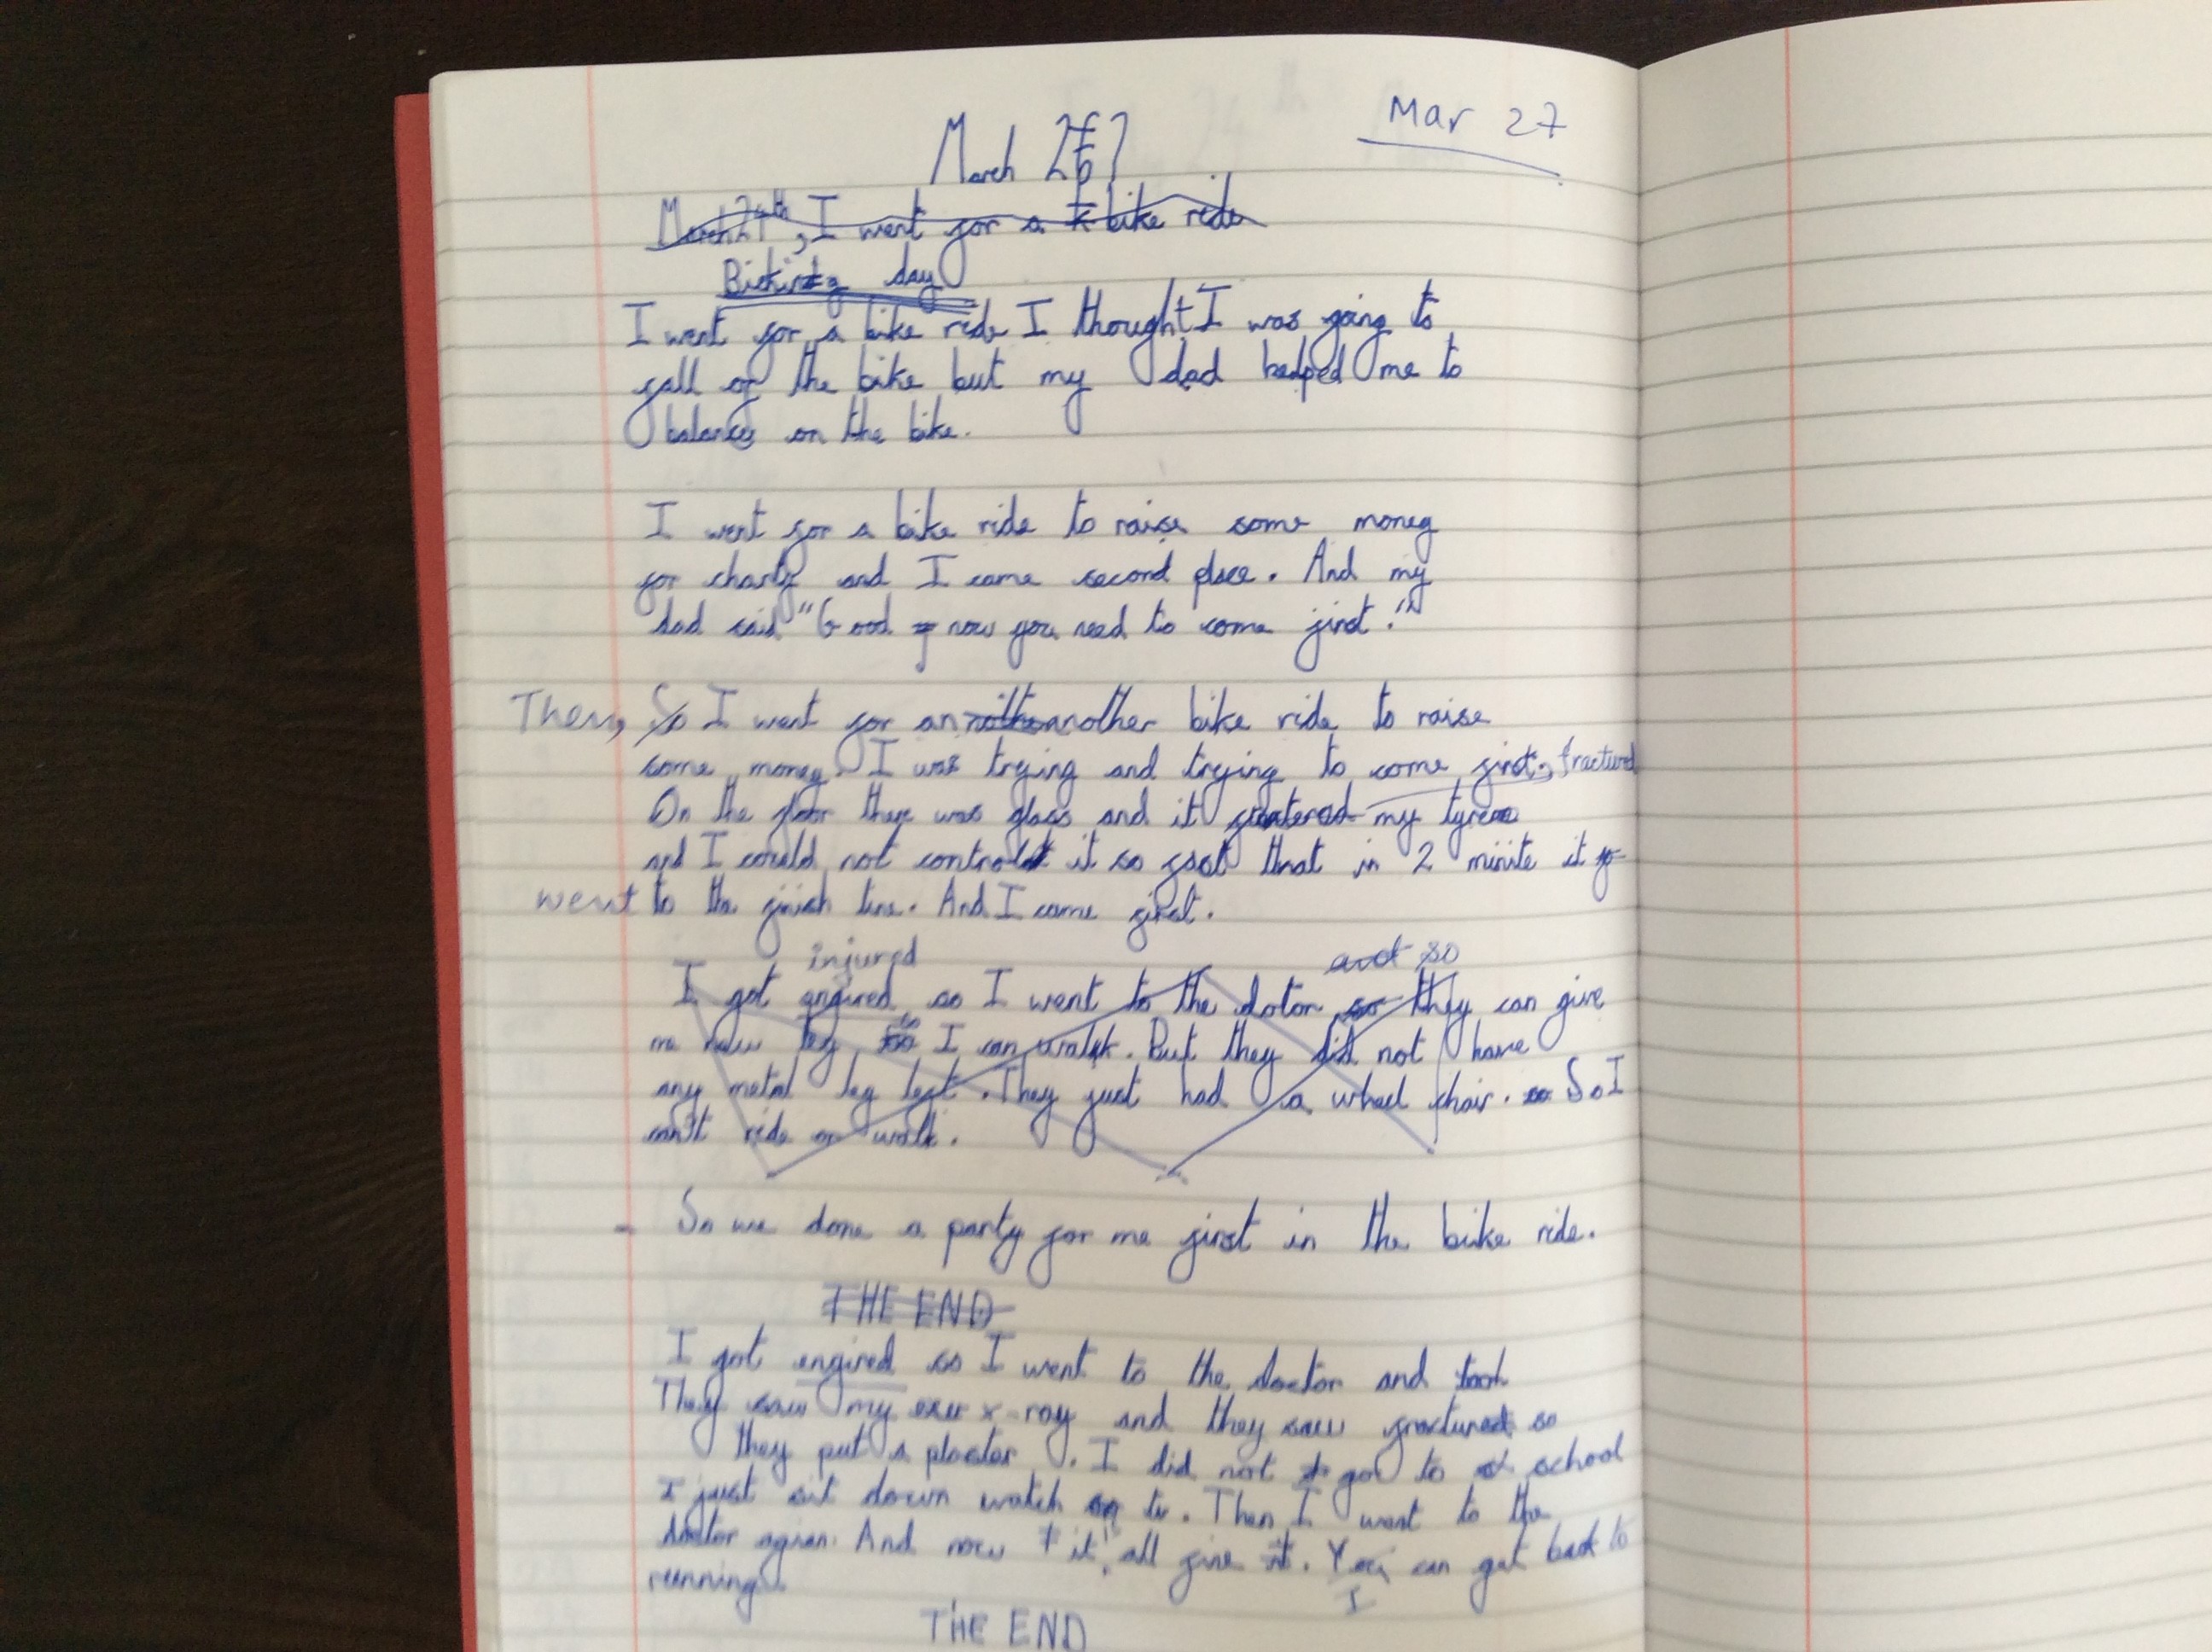 Mar 27
March 2
March 24th, I went for a bike ride
day
I went for a bike ride I thought I was going to
fall of the bike but my dad helped me to
balance on the bike.
I went for a bike ride to raise some money
for charity and I came second place. And my
dad said "Good now you need to come first."
Then, So I went for an another bike ride to raise
some money. I was trying and trying to come first. fractured
On the floor there was glass and it my tyre
and I could not control it so fast that in 2 minite it
went to the finish line. And I came first.
injured and so
I got engired so I went to the dotor so they can give
me new leg so I can walk. But they did not have
any metal leg left. They just had a wheel chair. so So I
can't ride or walk.
So we done a party for me first in the bike ride.
THE END
I got engired so I went to the doctor and took
They saw my x-ray and they saw fractured so
they put a plaster. I did not go to school
I just sit down watch tv. Then I went to the
doctor agian. And now it all fine it. You can get back to
running. I
THE END